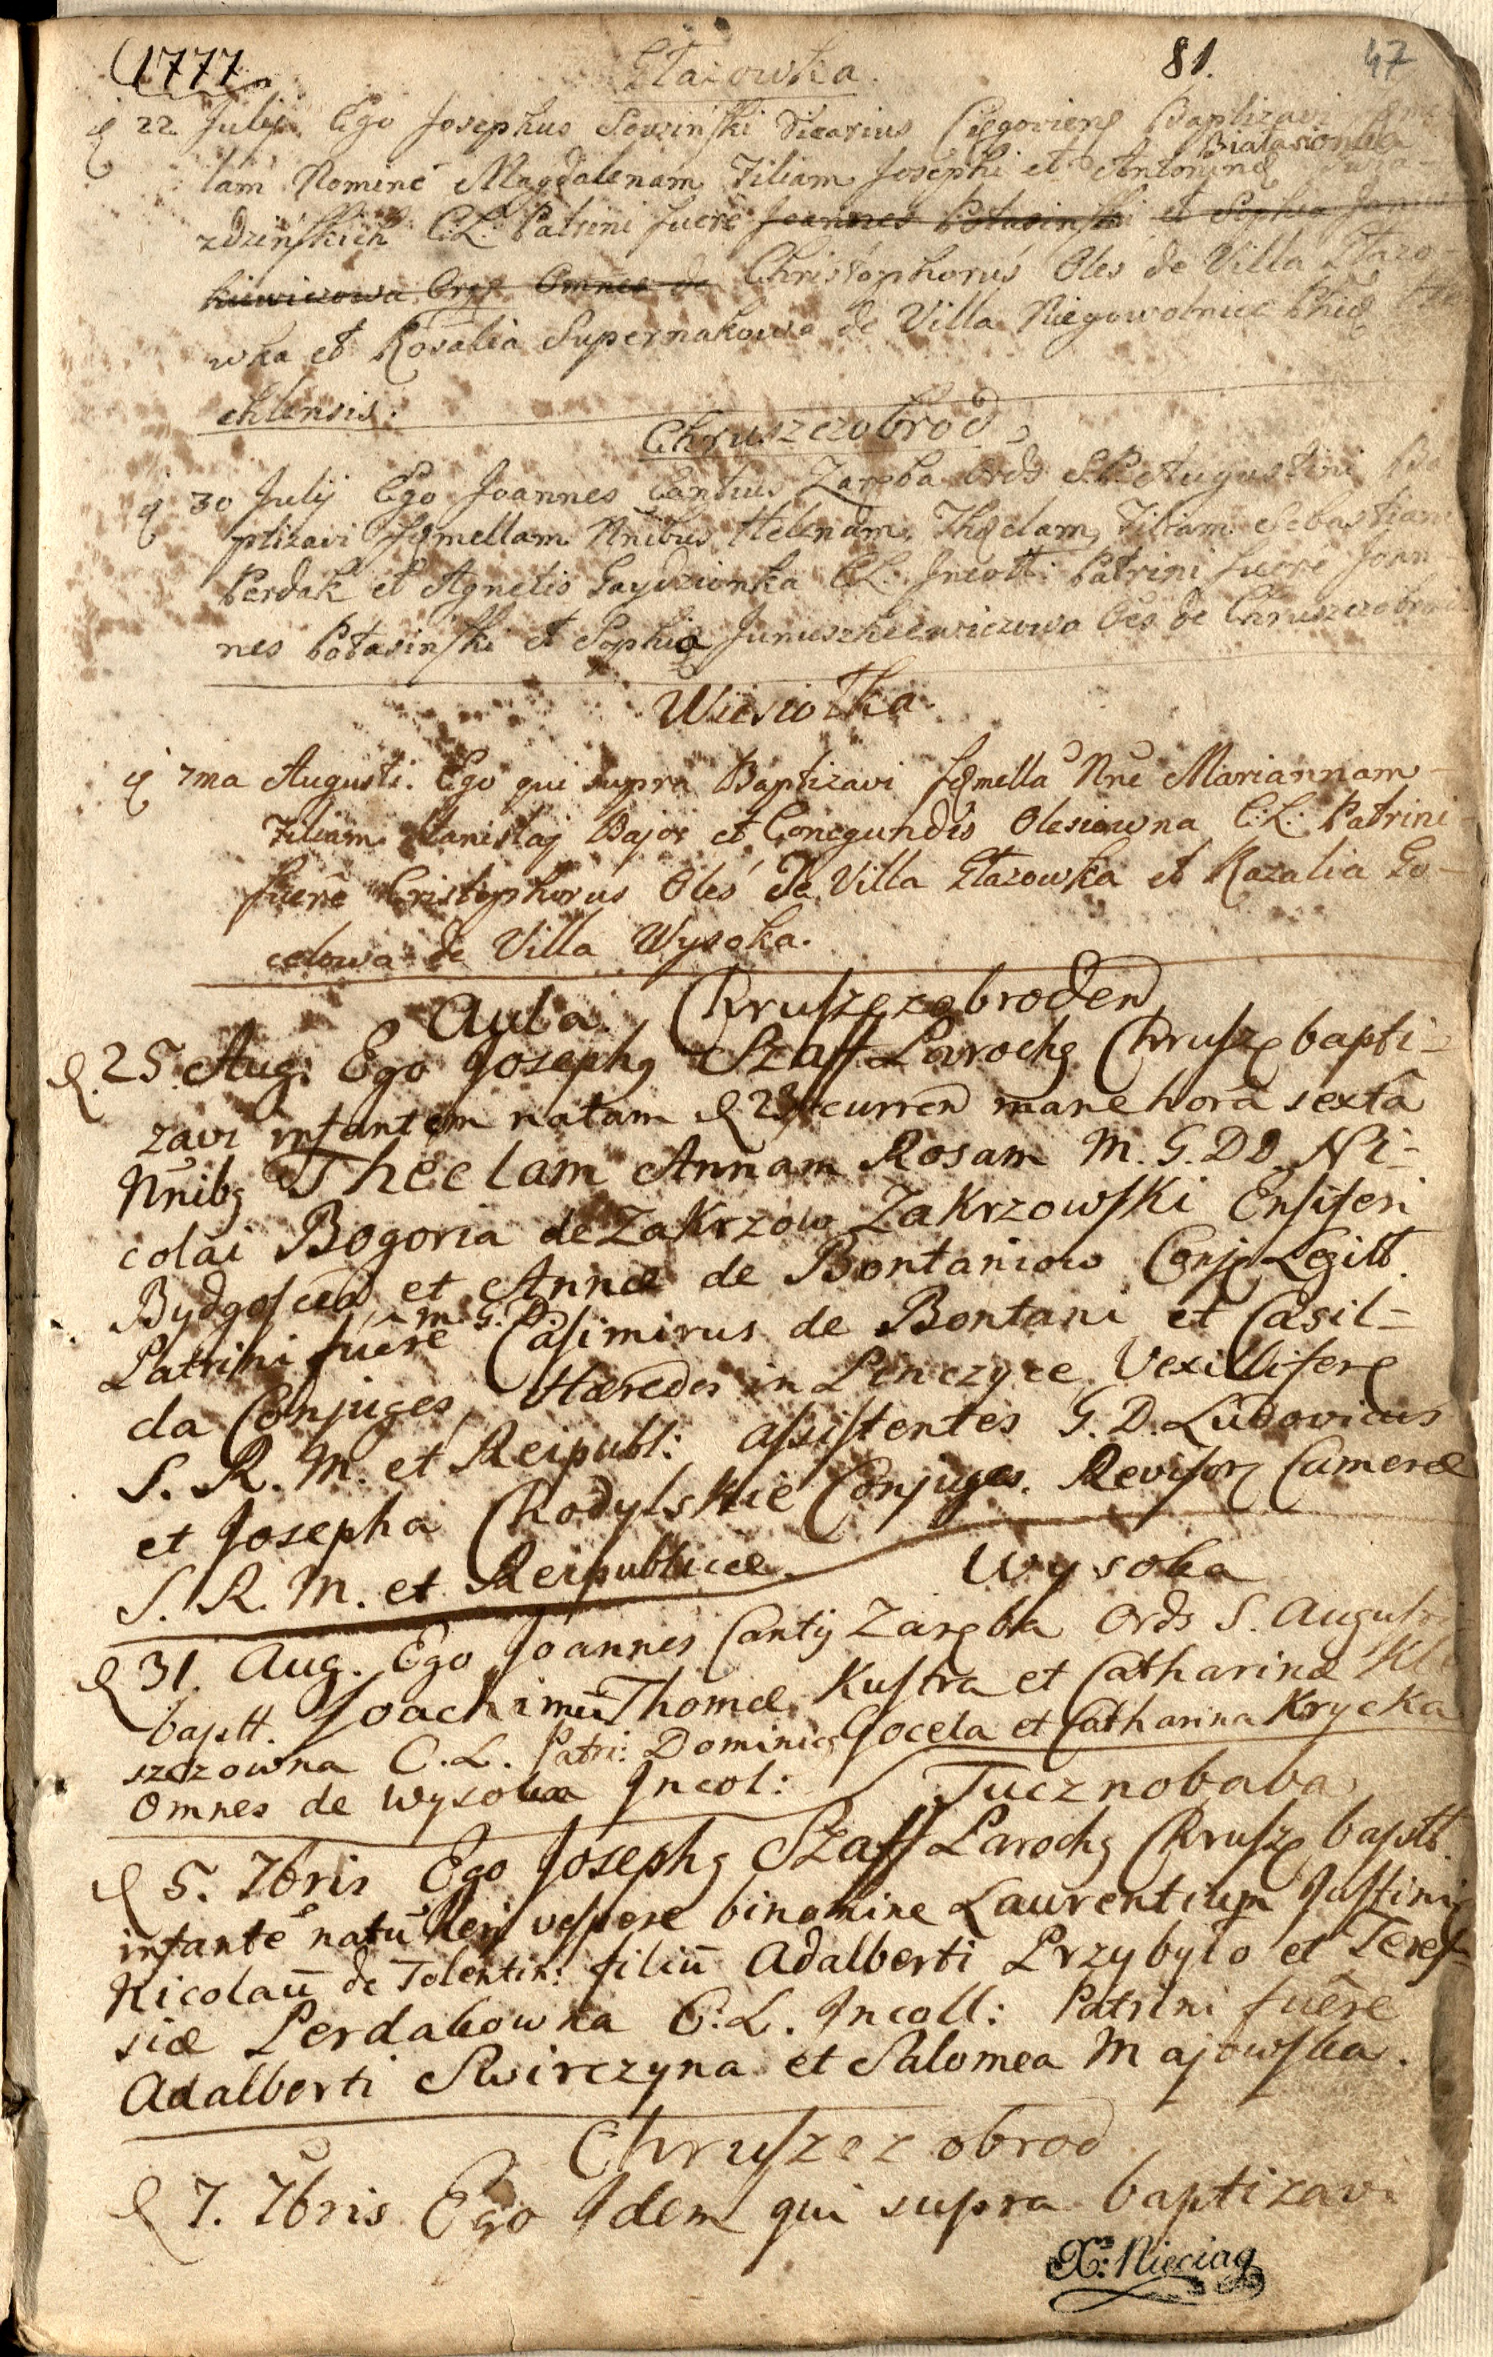 1777 Głazowka. 81. 47
22 July. Ego Josephus Vicarius Baptizavi
Białasionka
lam Nomine Magdalenam Filiam Josephi et Antoninę
zdzinskich C.L. Patrini fuere Joannes Potasinski et Sophia
Omnes de Christophorus Oles de Villa Głazo-
wka et Rosalia Supernakowa de Villa Niegowonice
chlensis.
Chruszczobrod
30 July Ego Joannes Cantius Zaręba Ords S.P. Augustini Ba
ptizavi fęmellam Nnibus Helenam, Thęclam, Filiam Sebastjani
Perdak et Agnetis Gaydzionka C.L. Incoll: Patrini fuere Joan-
nes Potasinski et Sophia Januszkiewiczowa Oes de Chruszczobrod
Wiesiołka.
7ma Augusti. Ego qui supra Baptizavi fęmella Nne Mariannam
Filiam Stanislaj Bajor et Conegundis Olesiowna C:L: Patrini
fuere Cristophorus Oles de Villa Głazowka et Rozalia Go-
celowa de Villa Wysoka.
Aula Chruszczobroden
25. Aug. Ego Joseph9 Szaff Paroch9 Chrusz bapti-
zavi infantem natam 23 curren mane hora sexta
Nnib9 Theclam Annam Rosam M. G. DD. Ni-
colai Bogoria de Zakrzow Zakrzowski Ensiferi
Bydgoscen et Annæ de Bontaniow Conj. Legitt.
M. G. D.
Patrini fuere Casimirus de Bontani et Casil-
da Conjuges, Hæredes in Penczyce, Vexillifere
S. R. M. et Reipubl: assistentes G. D. Ludovicus
et Josepha Chodylskie Conjuges. Revisor Cameræ
S. R. M. et Reipublicæ.
Wysoka
31. Aug. Ego Joannes Cantij Zaręba Ords S. Augusti
baptt. Joachimū Thomæ Kustra et Catharinæ Kli
szczowna C.L. Patri: Dominic9 Gocela et Catharina Krycka
Omnes de Wysoka Incol:
Tucznobaba
5. 7bris Ego Joseph9 Szaff Paroch9 Chrusz baptt.
infante natū heri vespere binomine Laurentium Justinia
Nicolaū de Tolentin: filiū Adalberti Przybyło et Teres-
siæ Perdakowna C.L. Incoll: Patrini fuere
Adalberti Swirczyna et Salomea Majowska.
Chruszczobrod
7. 7bris Ego Idem qui supra baptizavi
X: Nieciąg